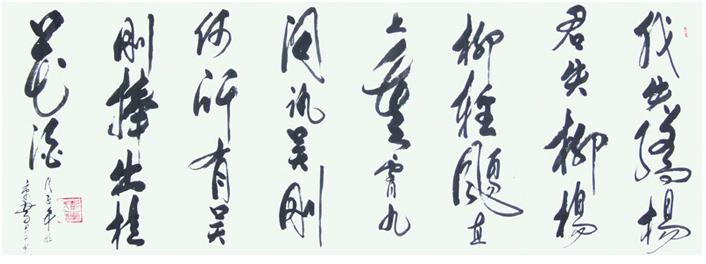 我失驕楊
君失柳楊
柳輕颺直
上重霄九
問訊吳剛
何所有吳
剛捧出桂
花酒